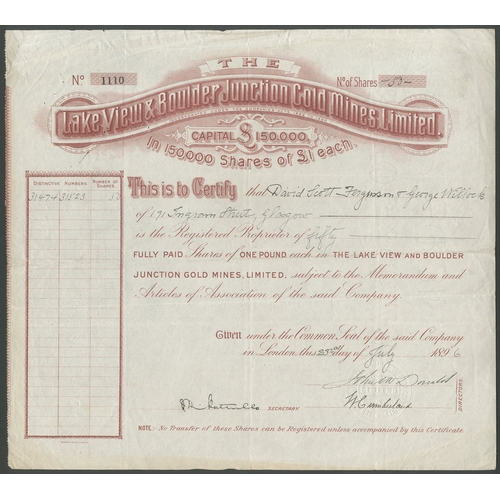 THE
No 1110
No of Shares -50-
Lake View & Boulder Junction Gold Mines, Limited.
CAPITAL £150,000,
In 150,000 Shares of £1 each.
DISTINCTIVE NUMBERS
NUMBER OF SHARES
31474 31523 50
This is to Certify that David Scott Ferguson & George
of 191 Ingram Street, Glasgow
is the Registered Proprietor of fifty
FULLY PAID Shares of ONE POUND each in THE LAKE VIEW AND BOULDER
JUNCTION GOLD MINES, LIMITED, subject to the Memorandum and
Articles of Association of the said Company.
Given under the Common Seal of the said Company
in London, this day of July 1896
SECRETARY
W Cumberland
DIRECTORS
NOTE:- No Transfer of these Shares can be Registered unless accompanied by this Certificate.